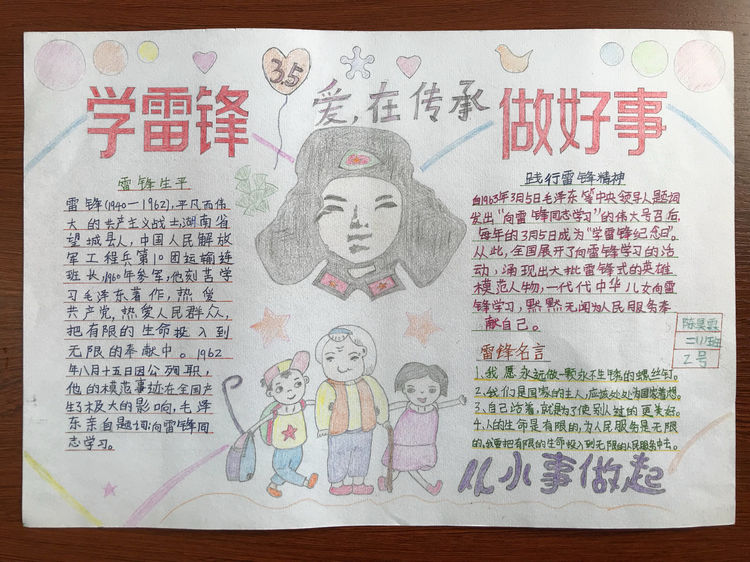 学雷锋
3.5
爱,在传承
做好事
雷锋生平
雷锋(1940—1962),平凡而伟
大的共产主义战士,湖南省
望城县人,中国人民解放
军工程兵第10团运输连
班长,1960年参军,他刻苦学
习毛泽东著作,热爱
共产党,热爱人民群众,
把有限的生命投入到
无限的奉献中。1962
年八月十五日因公殉职,
他的模范事迹在全国产
生了极大的影响,毛泽
东亲自题词:向雷锋同
志学习。
践行雷锋精神
自1963年3月5日毛泽东等中央领导人题词
发出“向雷锋同志学习”的伟大号召后
每年的3月5日成为“学雷锋纪念日”。
从此,全国展开了向雷锋学习的活
动,涌现出大批雷锋式的英雄
模范人物,一代代中华儿女向雷
锋学习,默默无闻为人民服务奉
献自己。
陈昊霖
二11班
2号
雷锋名言
1、我愿永远做一颗永不生锈的螺丝钉。
2、我们是国家的主人,应该处处为国家着想。
3、自己活着,就是为了使别人过的更美好。
4、人的生命是有限的,为人民服务是无限
的,我要把有限的生命投入到无限的为人民服务中去。
从小事做起